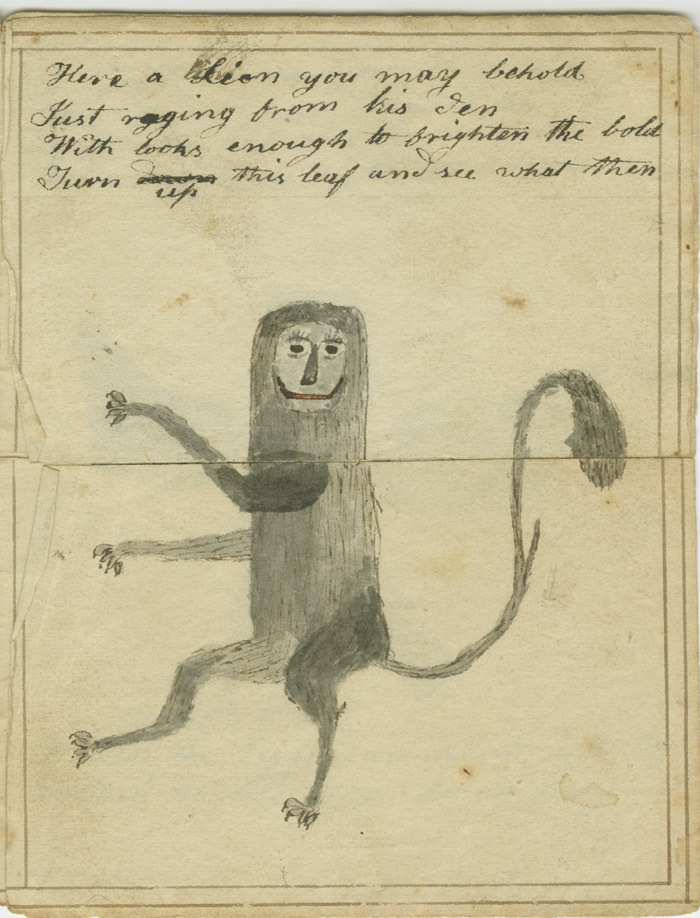 Here a Lion you may behold
Just raging from his Den
With looks enough to frighten the bold
Turn up this leaf and see what then